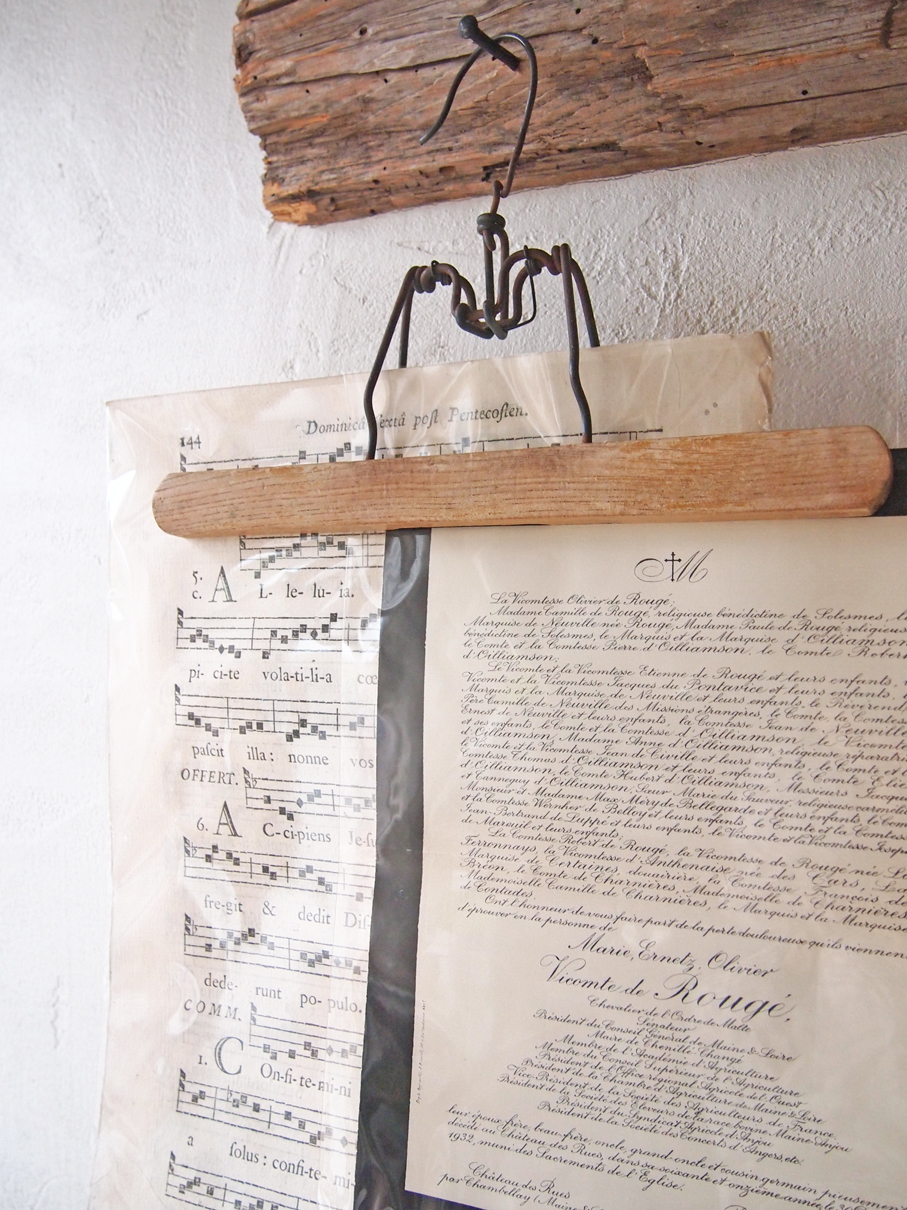 144
Dominicâ Sextâ poſt Pentecoſten.
5.
c. A L- le- lu- ia.
pi- ci-te vola-ti-li-a cœ
paſcit illa: nonne vos
OFFERT.
6. A C-ci-piens Je-ſu
fre-git & dedit Diſ
dede- runt po- pulo.
COMM.
1. C On-fi-te-mi-ni
a ſolus: confi-te- mi-
M
La Vicomtesse Olivier de Rougé;
Madame Camille de Rougé religieuse bénédictine de Solesmes, l
Marquise de Neuville née Rougé, Madame Paule de Rougé religieus
bénédictine de Solesmes, le Marquis et la Marquise d'Oilliamson
le Comte et la Comtesse Pierre d'Oilliamson, le Comte Rober
d'Oilliamson;
Le Vicomte et la Vicomtesse Etienne de Rougé et leurs enfants,
Vicomte et la Vicomtesse Jacques du Pontavice et leurs enfants,
Marquis et la Marquise de Neuville et leurs enfants, le Révérend
Père Camille de Neuville des Missions étrangères, le Comte, la Comtes
Ernest de Neuville et leurs enfants, la Comtesse Jean de Neuvill
et ses enfants, le Comte et la Comtesse d'Oilliamson, le Vicomt
d'Oilliamson, Madame Anne d'Oilliamson, religieuse réparatri
le Vicomte et la Vicomtesse Jean de Civille et leurs enfants, le Comte et l
Comtesse Thomas d'Oilliamson et leurs enfants, le Comte Elie
d'Oilliamson, le Comte Hubert d'Oilliamson, Messieurs Jacque
et Tanneguy d'Oilliamson, Sœur Marie du Sauveur, religieuse carmélit
Monsieur et Madame Max Méry de Bellegarde et leurs enfants, le Com
et la Comtesse Wernher de Belloy et leurs enfants, le Comte et la Comtess
Jean Bertrand de Luppé et leurs enfants, le Vicomte et la Vicomtesse Josep
de Mareuil et leurs enfants;
La Comtesse Robert de Rougé, la Vicomtesse de Rougé née L
Ferronnays, la Vicomtesse d'Anthenaise née des Cars, Lea
Marquise de Certaines, douairière, la Comtesse François de
Bréon, le Comte de Charnières, Mademoiselle de Charnières
Mademoiselle Camille de Charnières, le Marquis et la Marquise
de Contades,
Ont l'honneur de vous faire part de la perte douloureuse qu'ils viennen
d'éprouver en la personne de
Marie, Ernetz, Olivier
Vicomte de Rougé,
Chevalier de l'Ordre de Malte
Sénateur
Président du Conseil Général de Maine & Loire
Maire de Chenillé-Changé
Membre de l'Académie d'Agriculture
Membre du Conseil Supérieur de l'Agriculture
Président de l'Office régional Agricole de l'Ouest
Président de la Chambre d'Agriculture de Maine & Loire
Vice-Président de la Société des Agriculteurs de France
Président de la Société des Eleveurs de la race bovine Maine-Anjou
Président du Syndicat Agricole d'Anjou
Président de la Société des Concerts d'Angers, etc.
leur époux, frère, beau-frère, oncle, grand-oncle et cousin germain, pieusement
décédé au Château des Rues, dans sa soixante et onzième année, le
1932, muni des Sacrements de l'Eglise.
Château des Rues
par Chambellay (Maine &